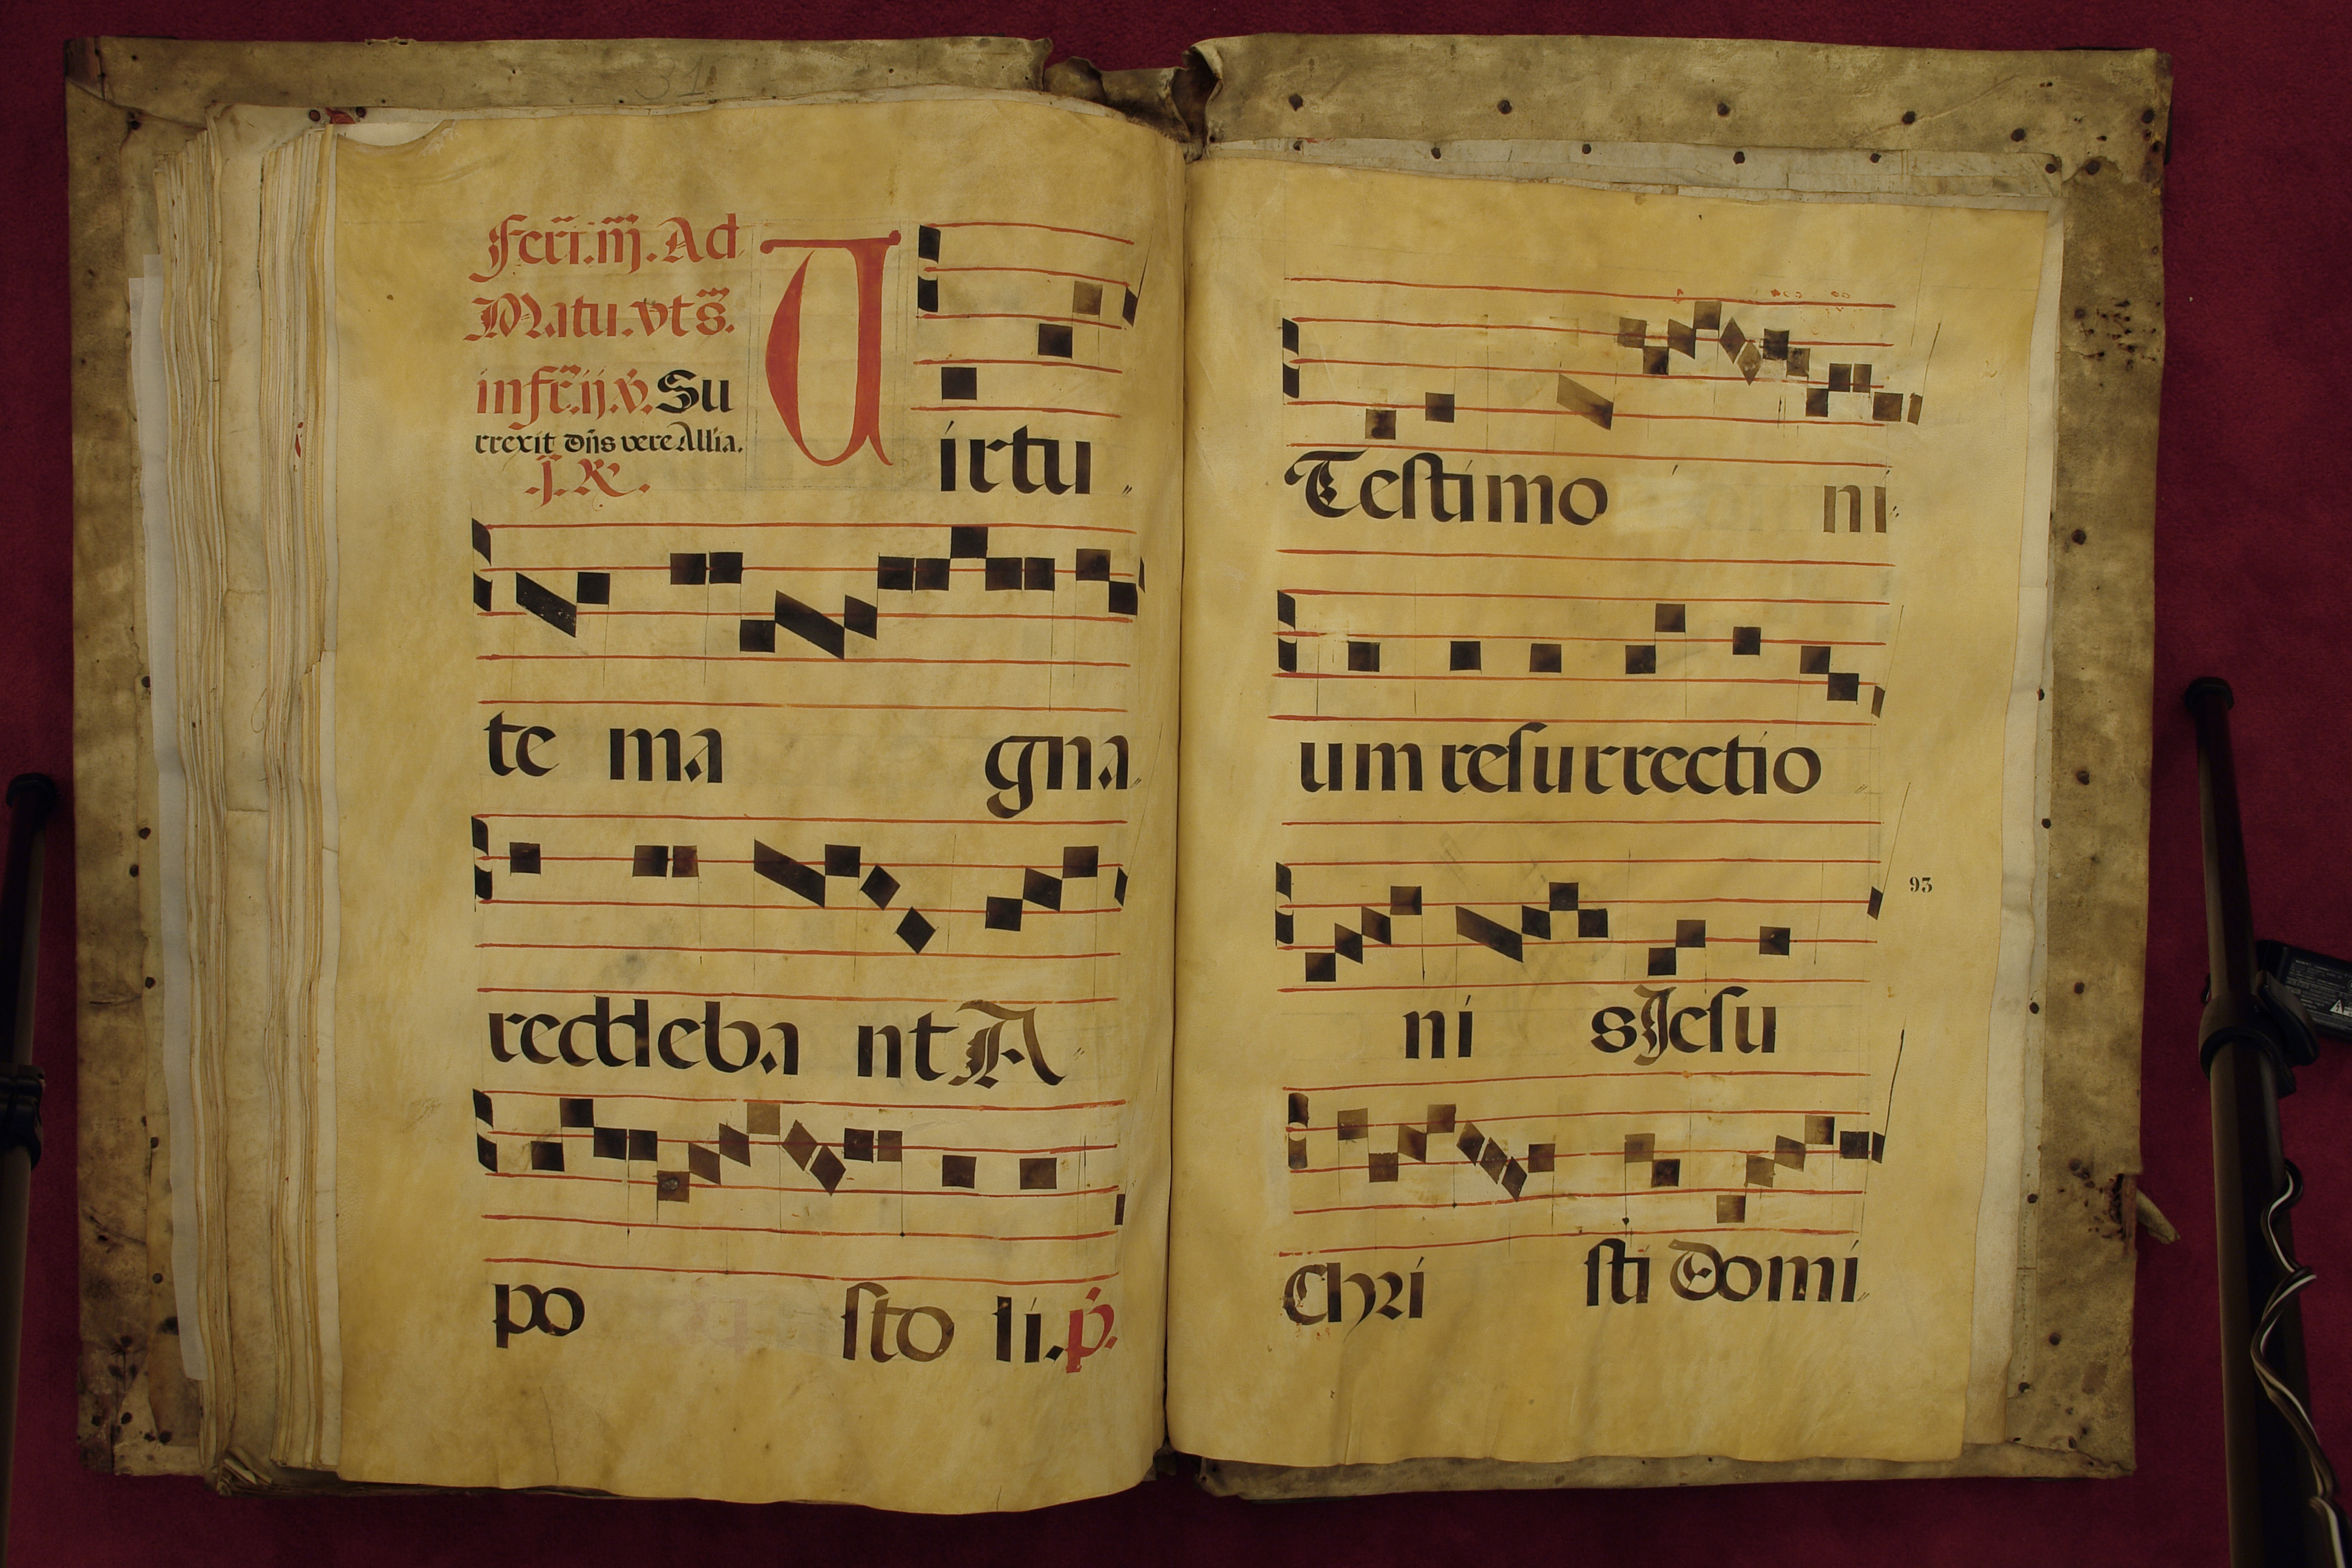 Feri.iij. Ad
Matu. vts.
infr.ij.v. Su
rrexit dñs vere Allia.
.j. R.
Virtu
te ma gna
reddeba nt A
po sto li. p.
Testimo ni
um resurrectio
ni s Jesu
Chri sti Domi
93